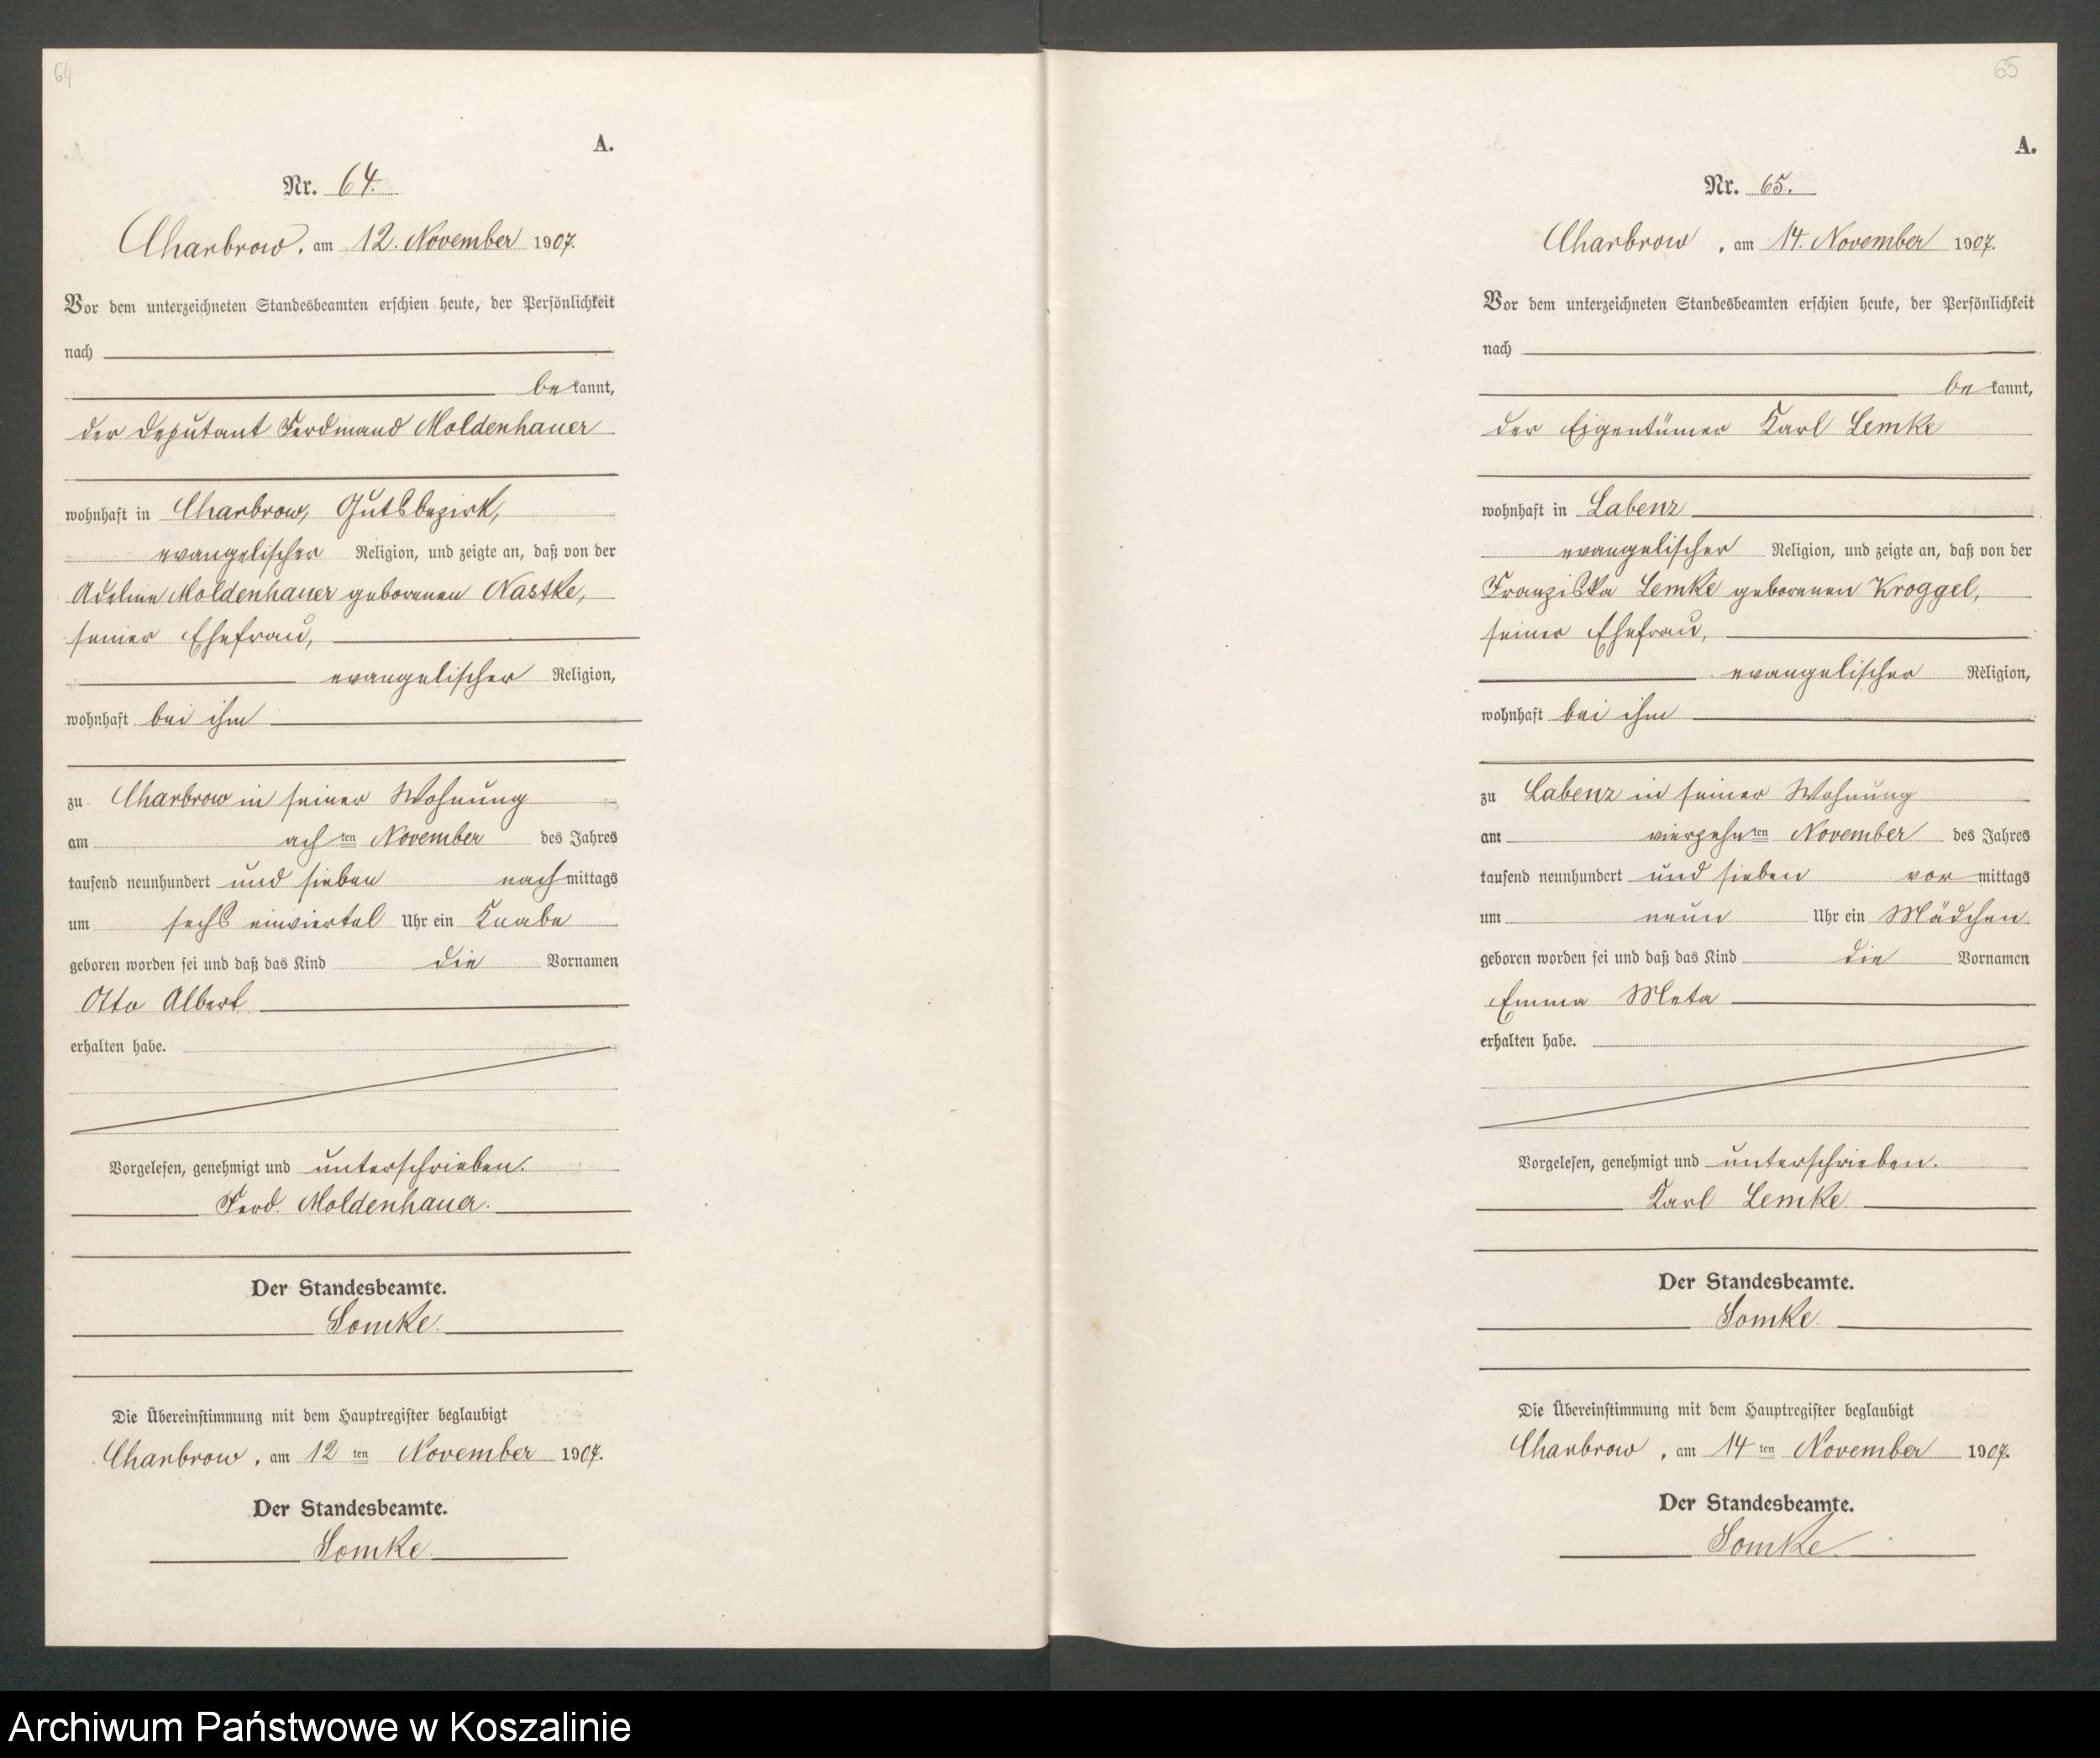 64
A.
Nr. 64.
Charbrow, am 12. November 1907.
Vor dem unterzeichneten Standesbeamten erschien heute, der Persönlichkeit
nach
be kannt,
der Deputant Ferdinand Moldenhauer
wohnhaft in Charbrow, Gutsbezirk,
evangelischer Religion, und zeigte an, daß von der
Adeline Moldenhauer geborenen Nastke,
seiner Ehefrau,
evangelischer Religion,
wohnhaft bei ihm
zu Charbrow in seiner Wohnung
am achten November des Jahres
tausend neunhundert und sieben nachmittags
um sechs einviertel Uhr ein Knabe
geboren worden sei und daß das Kind die Vornamen
Otto Albert
erhalten habe.
Vorgelesen, genehmigt und unterschrieben.
Ferd. Moldenhauer.
Der Standesbeamte.
Somke.
Die Übereinstimmung mit dem Hauptregister beglaubigt
Charbrow, am 12ten November 1907.
Der Standesbeamte.
Somke.
65
A.
Nr. 65.
Charbrow, am 14. November 1907.
Vor dem unterzeichneten Standesbeamten erschien heute, der Persönlichkeit
nach
be kannt,
der Eigentümer Karl Lemke
wohnhaft in Labenz
evangelischer Religion, und zeigte an, daß von der
Franziska Lemke geborenen Kroggel,
seiner Ehefrau,
evangelischer Religion,
wohnhaft bei ihm
zu Labenz in seiner Wohnung
am vierzehnten November des Jahres
tausend neunhundert und sieben vormittags
um neun Uhr ein Mädchen
geboren worden sei und daß das Kind die Vornamen
Emma Meta
erhalten habe.
Vorgelesen, genehmigt und unterschrieben.
Karl Lemke.
Der Standesbeamte.
Somke.
Die Übereinstimmung mit dem Hauptregister beglaubigt
Charbrow, am 14ten November 1907.
Der Standesbeamte.
Somke.
Archiwum Państwowe w Koszalinie